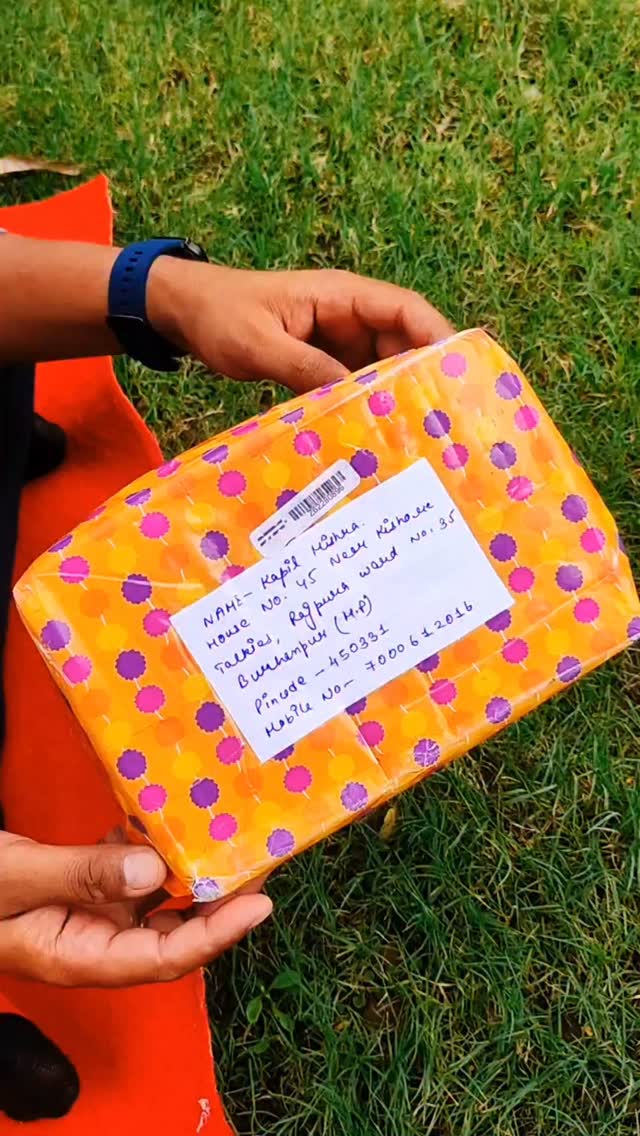 Z62280896
NAME- Kapil Mishra.
House NO. 45 Near Kishore
Talkies, Rajpura ward No. 35
Burhanpur (M.P)
Pincode - 450331
Mobile No- 7000612016